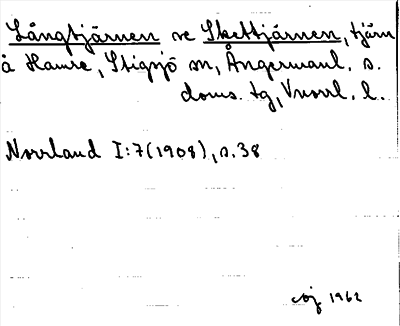 Långtjärnen se Skettjärnen, tjärn
å Hamre, Stigsjö sn, Ångermanl. s.
doms. tg, Vnorrl. l.
Norrland I:7(1908), s. 38
1962